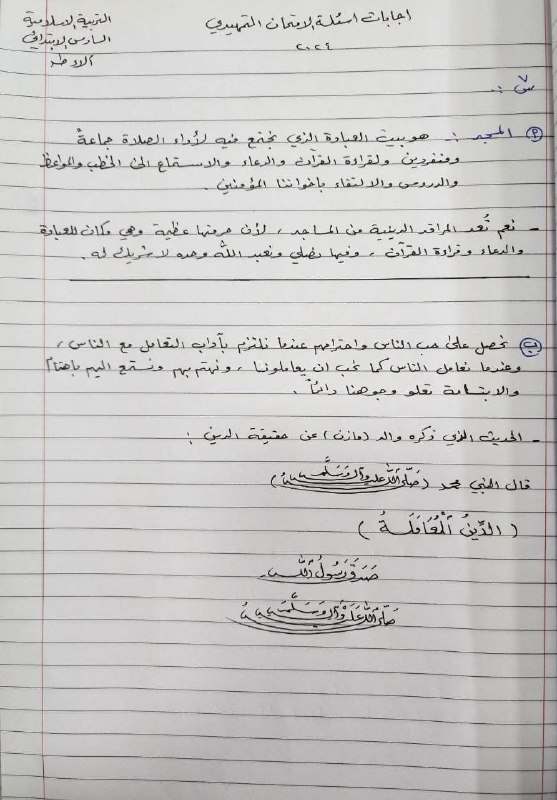 التربية الإسلامية
السادس الابتدائي
اجابات اسئلة الامتحان التمهيدي
٢٠٢٤
س٧ :.
أ المسجد :. هو بيت العبادة الذي يجتمع فيه لأداء الصلاة جماعةً
ومنفردين ولقراءة القرآن والدعاء والاستماع الى الخطب والمواعظ
والدروس والالتقاء بإخواننا المؤمنين .
- نعم تُعد المراقد الدينية من المساجد ، لأن حرمتها عظيمة وهي مكان للعبادة
والدعاء وقراءة القرآن ، وفيها نصلي ونعبد الله وحده لا شريك له .
ب نحصل على حب الناس واحترامهم عندما نلتزم بآداب التعامل مع الناس ،
وعندما نعامل الناس كما نحب ان يعاملوننا ، ونهتم بهم ونستمع اليهم باهتمام
والابتسامة تعلو وجوهنا دائماً .
- الحديث الذي ذكره والد (مازن) عن حقيقة الدين :
قال النبي محمد (صَلَّى اللهُ عليه وآله وَسَلَّم)
( الدِّينُ الْمُعَامَلَةُ )
صَدَقَ رَسُولُ اللهِ
صَلَّى اللهُ عَلَيْهِ وَآلِهِ وَسَلَّمَ